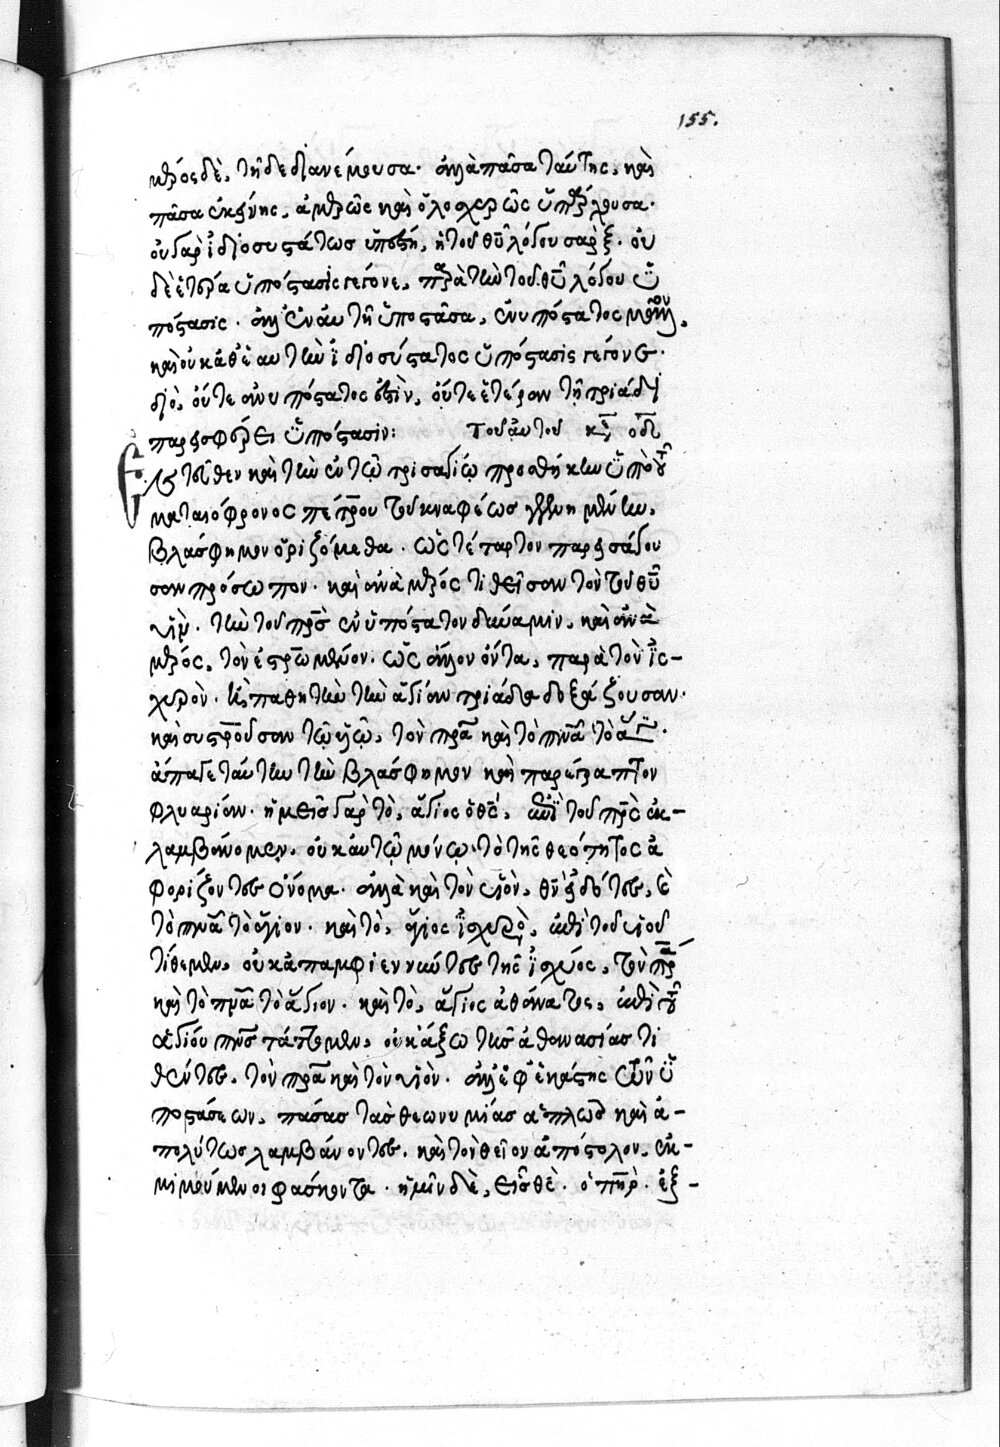 155.
μέρος δὲ, τῆδε διανέμουσα· ἀλλὰ πᾶσα ταύτης, καὶ
πᾶσα ἐκείνης, ἀμερῶς καὶ ὁλοσχερῶς ὑπάρχουσα·
οὐ γὰρ ἰδιοσυστάτως ὑπέστη, ἡ τοῦ θῦ λόγου σάρξ· οὐ
δὲ ἑτέρα ὑπόστασις γέγονε, παρὰ τὴν τοῦ θῦ λόγου ὑ
πόστασις· ἀλλ' ἐν αὐτῆ ὑποστᾶσα, ἐνυπόστατος μᾶλλον,
καὶ οὐ καθ' ἑαυτὴν ἰδιοσύστατος ὑπόστασις γέγονε·
διὸ, οὔτε ἀνυπόστατος ἐστὶν, οὔτε ἑτέραν τῆ τριάδι
παρεισφέρει ὑπόστασιν: τοῦ αὐτοῦ
Ἐντεῦθεν καὶ τὴν ἐν τῶ τρισαγίω προσθήκην ὑπὸ τοῦ
ματαιόφρονος πέτρου τοῦ κναφέως γεγενημένην,
βλάσφημον ὁριζόμεθα· ὡς τέταρτον παρεισάγου
σαν πρόσωπον· καὶ ἀνὰ μέρος τιθεῖσαν τὸν τοῦ θῦ
υἱὸν· τὴν τοῦ πρς ἐνυπόστατον δύναμιν, καὶ ἀνὰ
μέρος, τὸν ἐστρωμένον· ὡς ἄλλον ὄντα, παρὰ τὸν ἰσ-
χυρὸν· ἢ παθητὴν τὴν ἁγίαν τριάδα δοξάζουσαν·
καὶ συσταυροῦσαν τῶ υἱῶ, τὸν πρα καὶ τὸ πνα τὸ ἅγιον·
ἄπαγε ταύτην τὴν βλάσφημον καὶ παρέγγραπτον
φλυαρίαν· ἡμεῖς γὰρ τὸ, ἅγιος ὁ θς, ἐπὶ τοῦ πρς ἐκ-
λαμβάνομεν, οὐκ αὐτῶ μόνω τὸ τῆς θεότητος ἀ
φορίζοντες ὄνομα· ἀλλὰ καὶ τὸν υἱὸν, θν εἰδότες, καὶ
τὸ πνα τὸ ἅγιον· καὶ τὸ, ἅγιος ἰσχυρὸς, ἐπὶ τοῦ υἱοῦ
τίθεμεν, οὐκ ἀπαμφιεννύντες τῆς ἰσχύος, τὸν πρα
καὶ τὸ πνα τὸ ἅγιον· καὶ τὸ, ἅγιος ἀθάνατος, ἐπὶ τοῦ
ἁγίου πνς τάττομεν, οὐκ ἔξω τῆς ἀθανασίας τι
θέντες, τὸν πρα καὶ τὸν υἱὸν· ἀλλ' ἐφ' ἑκάστης τῶν ὑ
ποστάσεων, πάσας τὰς θεωνυμίας ἁπλῶς καὶ ἀ-
πολύτως λαμβάνοντες, καὶ τὸν θεῖον ἀπόστολον, ἐκ-
μιμούμενοι φάσκοντα· ἡμῖν δὲ, εἷς θς· ὁ πηρ· ἐξ-